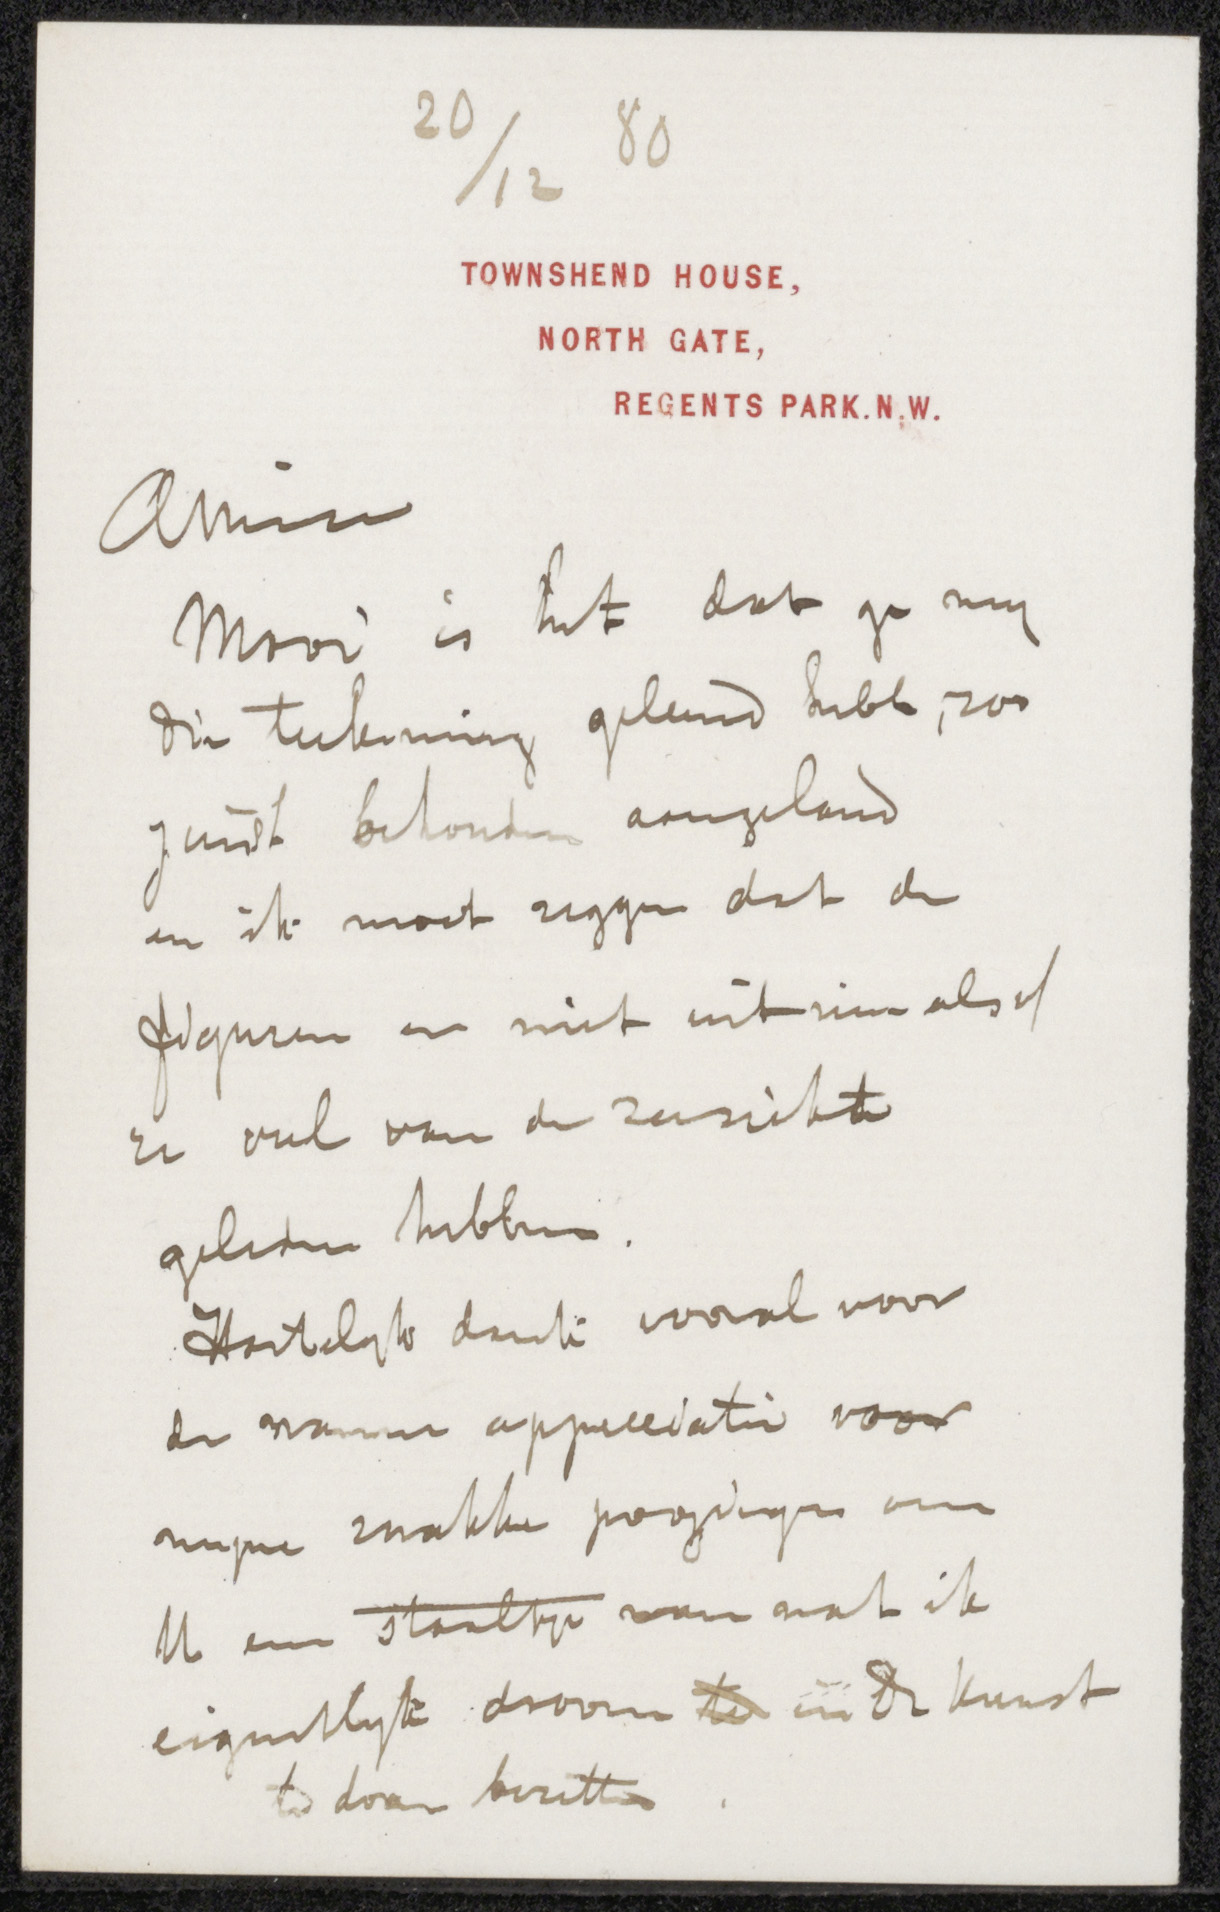 20/12 80
TOWNSHEND HOUSE,
NORTH GATE,
REGENTS PARK.N.W.
Amice
Mooi is het dat ge my
die teekening geleend hebt, zoo
juist behouden aangeland
en ik moet zeggen dat de
figuren er niet uitzien alsof
ze veel van de zeeziekte
geleden hebben.
Hartelyk dank vooral voor
de warme appreciatie voor
mijne zwakke poogingen om
U een staaltje van wat ik
eigentlyk droom te in De kunst
te doen bezitten.